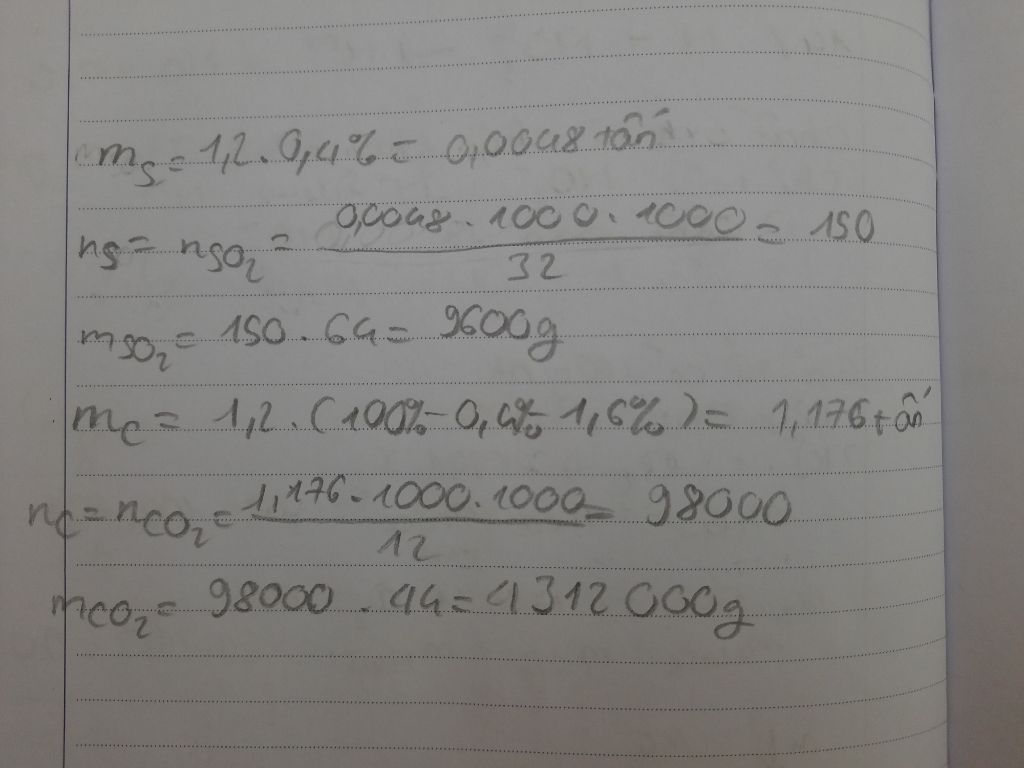 m_S = 1,2 . 0,4% = 0,0048 tấn
n_S = n_SO₂ = (0,0048 . 1000 . 1000)/32 = 150
m_SO₂ = 150 . 64 = 9600g
m_C = 1,2 . (100% - 0,4% - 1,6%) = 1,176 tấn
n_C = n_CO₂ = (1,176 . 1000 . 1000)/12 = 98000
m_CO₂ = 98000 . 44 = 4312 000g